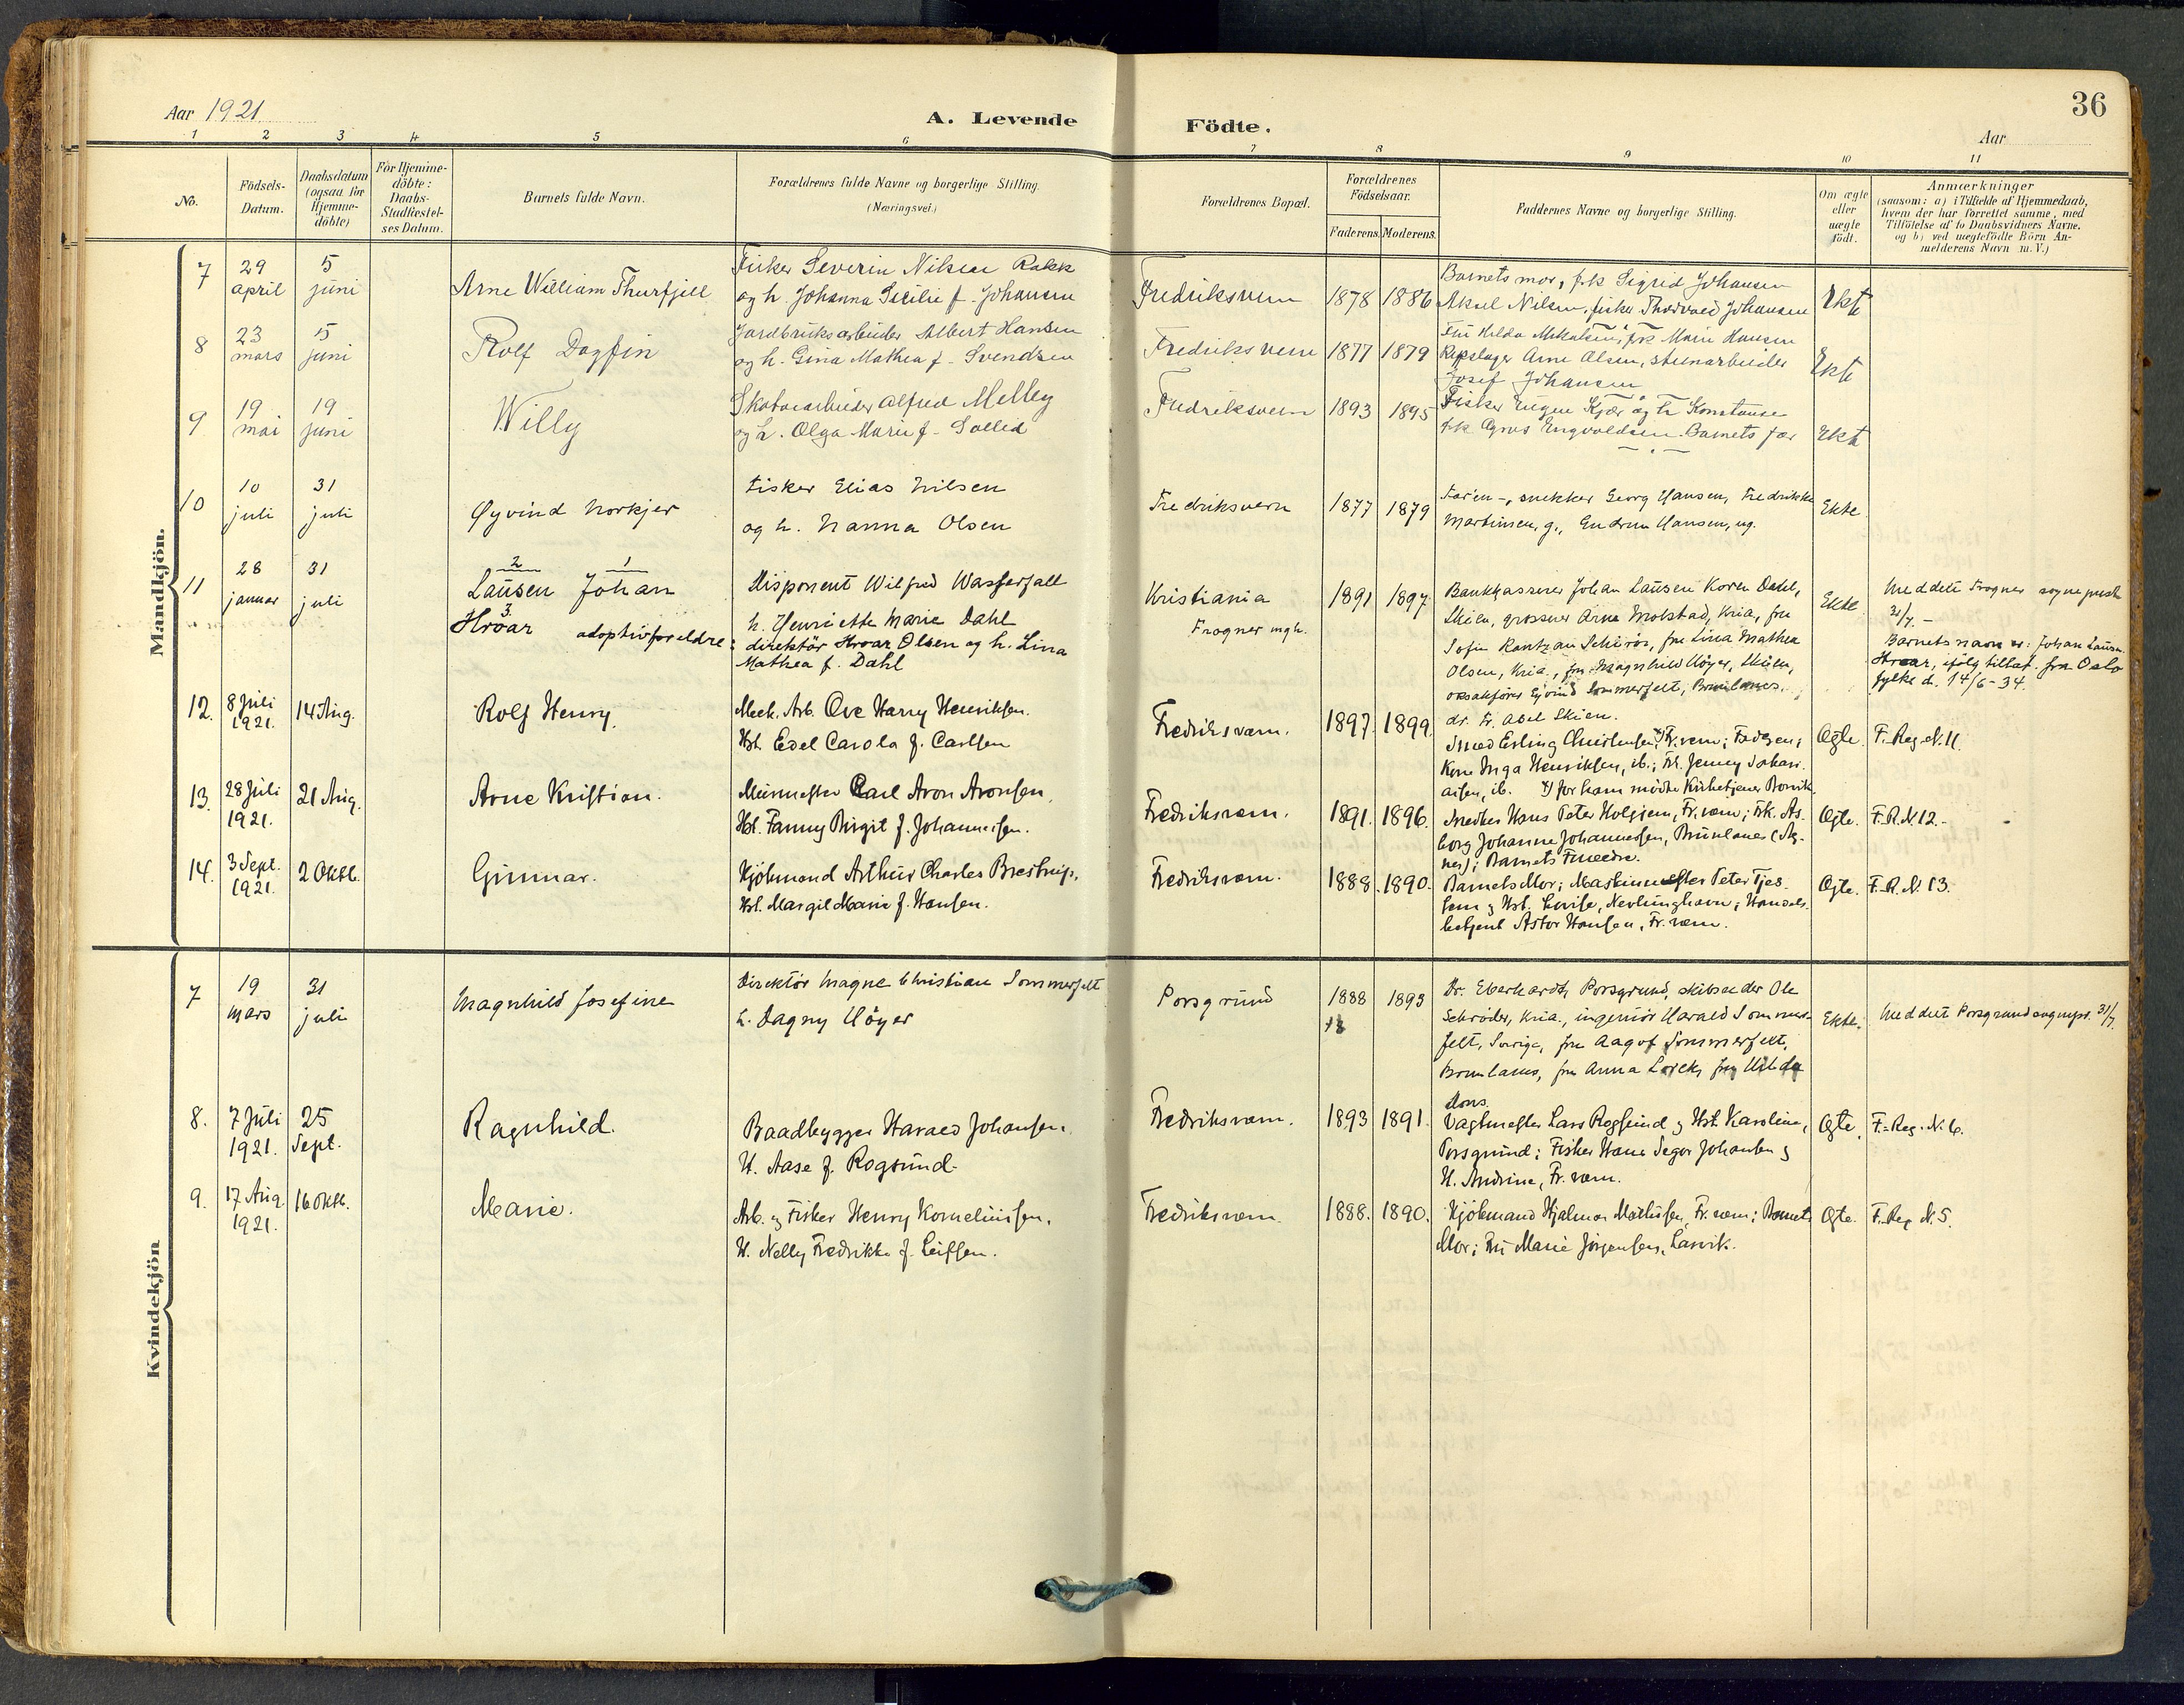 36
Aar 1921
A. Levende
Födte.
Aar
1 2 3 4 5 6 7 8 9 10 11
No.
Födsels-
Datum.
Daabsdatum
(ogsaa for
Hjemme-
döbte)
For Hjemme-
döbte:
Daabs-
Stadfæstel-
ses Datum.
Barnets fulde Navn.
Forældrenes fulde Navne og borgerlige Stilling.
(Næringsvei.)
Forældrenes Bopæl.
Forældrenes
Födselsaar.
Faderens.
Moderens.
Faddernes Navne og borgerlige Stilling.
Om ægte
eller
uægte
födt.
Anmærkninger
(saasom: a) i Tilfælde af Hjemmedaab,
hvem der har forrettet samme, med
Tilföielse af to Daabsvidners Navne.
og b) ved uægtefödte Börn An-
melderens Navn m. V.)
Mandkjön.
7
29
april
5
juni
Arne William Thurfjell
Fisker Severin Nilsen Rakk
og h. Johanna Sicilie f. Johansen
Fredriksvern
1878
1886
Barnets mor, frk Sigrid Johansen
Aksel Nilsen, fisker Thorvald Johansen
Ekte
8
23
mars
5
juni
Rolf Dagfin
Jordbruksarbeider Albert Hansen
og h. Gina Mathea f. Svendsen
Fredriksvern
1877
1879
Fru Hilda Mikalsen, frk Marie Hansen
Repslager Arne Olsen, stenarbeider
Josef Johansen
Ekte
9
19
mai
19
juni
Willy
Skotoiarbeider Alfred Melby
og h. Olga Marie f. Solled
Fredriksvern
1893
1895
Fisker Eugen Kjær og h Konstanse
frk Agnes Engvoldsen. Barnets far
Ekte
10
10
juli
31
juli
Øyvind Norkjer
Fisker Elias Nilsen
og h. Nanna Olsen
Fredriksvern
1877
1879
Faren -, snekker Georg Hansen, Fredrikke
Martinsen, g., Gudrun Hansen, ug.
Ekte
11
28
januar
31
juli
2 1
Lausen Johan
3.
Hroar adoptivforeldre:
Disponent Wilfred Wasserfall
h. Henriette Marie Dahl
direktör Hroar Olsen og h. Lina
Mathea f. Dahl
Kristiania
Frogner mgh.
1891
1897
Bankkasserer Johan Lausen Koren Dahl,
Skien, grosserer Arne Molstad, Kria, fru
Sofie Rantzau Schirös, fru Lina Mathea
Olsen, Kria., fru Magnhild Höyer, Skien,
oksakförer Eyvind Sommerfelt, Brunlanes.
dr. Fr. Abel Skien.
Ekte
Meddelt Frogner sogneprest
31/7. -
Barnets navn er: Johan Lausen
Hroar, ifölg tillat. fra Oslo
fylke d. 14/6-34.
12.
8 Juli
1921.
14 Aug.
Rolf Henry.
Mek. Arb. Ove Harry Henriksen.
Hst. Edel Carola f. Carlsen
Fredriksværn.
1897.
1899.
Smed Erling Christensen, Fr.værn; Faderen;
Kone Inga Henriksen, ib.; Fr. Jenny Johan-
nisen, ib.
Ægte.
F. Reg. N. 11.
13.
28 Juli
1921.
21 Aug.
Arne Kristian.
Murmester Carl Aron Aronsen,
Hst. Fanny Birgit f. Johannesen.
Fredriksværn.
1891.
1896.
Snedker Hans Peter Holgjem, Fr.værn; Frk. As-
borg Johanne Johannessen, Brunlanes (Ag-
nes); Barnets Foreldre.
Ægte.
F. R. N. 12.-
14.
3 Sept.
1921.
2 Oktb.
Gunnar.
Kjöbmand Arthur Charles Brestrup,
Hst. Margit Marie f. Hansen.
Fredriksværn.
1888.
1890.
Barnets Mor; Maskinmester Peter Tjes-
sem og Hst. Lovise, Nevlunghavn; Handels-
betjent Astor Hansen, Fr. værn.
Ægte.
F. R. N. 13.
Kvindekjön
7
19
mars
31
juli
Magnhild Josefine
Direktör Magne Christian Sommerfelt
h. Dagny Höyer
Porsgrund
1888
1893
Dr. Eberhardt, Porsgrund, skibsreder Ole
Schröder, Kria., ingeniör Harald Sommer-
felt, Sverige, fru Aagot Sommerfelt,
Brunlanes, fru Anna Lorck, fru Hilda
dons.
Ekte.
Meddelt Porsgrund sognepr. 31/7.
8.
7 Juli
1921.
25
Sept.
Ragnhild.
Baadbygger Harald Johansen.
H. Aase f. Rogsund.
Fredriksværn.
1893
1891.
Vagtmester Lars Rogsund og Hst. Karoline,
Porsgrund; Fisker Hans Seger Johansen og
H. Andrine, Fr. værn.
Ægte.
F. Reg. N. 6.
9.
17 Aug.
1921.
16 Oktb.
Marie.
Arb. og Fisker Henry Korneliussen,
H. Nelly Fredrikke f. Leifsen.
Fredriksværn.
1888.
1890.
Kjöbmand Hjalmar Mathisen, Fr.værn; Barnets
Mor; Fru Marie Jörgensen, Larvik.
Ægte.
F. Reg N. 5.